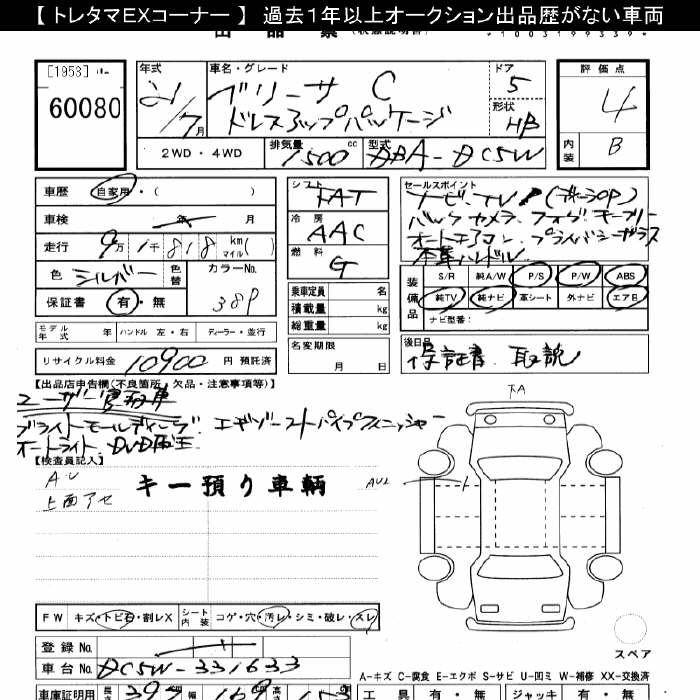 【 トレタマEXコーナー 】 過去１年以上オークション出品歴がない車両
[1953]
60080
年式 21/7月
車名・グレード ベリーサ C
ドレスアップパッケージ
ドア 5
形状 HB
2WD・4WD
排気量 1500 cc
型式 DBA-DC5W
評価点 4
内装 B
車歴 自家用・( )
車検 年 月
走行 9万1千818 km マイル( )
色 シルバー 色替 カラーNo. 38P
保証書 有・無
モデル年式 年 ハンドル 左・右 ディーラー・並行
リサイクル料金 10900 円 預託済
シフト FAT
冷房 AAC
燃料 G
乗車定員 名
積載量 kg
総重量 kg
名変期限
月 日
セールスポイント
ナビ、TV (ディーラOP)
バックカメラ、フォグ キーフリー
オートエアコン、プライバシーガラス
本革ハンドル
装備品 S/R 純A/W P/S P/W ABS
純TV 純ナビ 革シート 外ナビ エアB
ナビ型番：
後日品
保証書 取説
【出品店申告欄(不良箇所、欠品・注意事項等)】
ユーザー買取車
ブライトモールディング、エギゾーストパイプフィニッシャー
オートライト、DVD再生
【検査員記入】
AU
上面アセ
キー預り車輌
AU2
FW キズ・トビ石・割レX シート内装 コゲ・穴・汚レ・シミ・破レ・スレ
登録 No.
車台 No. DC5W-331633
スペア
A-キズ C-腐食 E-エクボ S-サビ U-凹ミ W-補修 XX-交換済
車庫証明用 長さ 397 169 高さ 153
工具 有・無 ジャッキ 有・無